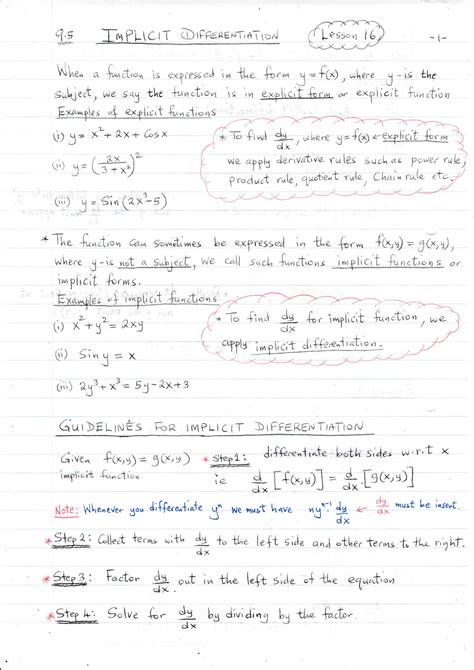 9.5 IMPLICIT DIFFERENTIATION Lesson 16 -1-
When a function is expressed in the form y=f(x), where y-is the
subject, we say the function is in explicit form or explicit function
Examples of explicit functions
(i) y = x² + 2x + Cosx
(ii) y = (2x/(3+x²))²
(iii) y = Sin(2x³-5)
* To find dy/dx, where y=f(x) ← explicit form
we apply derivative rules such as power rule,
product rule, quotient rule, Chain rule etc.
* The function can sometimes be expressed in the form f(x,y) = g(x,y),
where y-is not a subject, we call such functions implicit functions or
implicit forms.
Examples of implicit functions
(i) x² + y² = 2xy
(ii) Siny = x
(iii) 2y³ + x³ = 5y - 2x + 3
* To find dy/dx for implicit function, we
apply implicit differentiation.
GUIDELINES FOR IMPLICIT DIFFERENTIATION
Given f(x,y) = g(x,y)
implicit function
* Step1: differentiate both sides w.r.t x
ie d/dx [f(x,y)] = d/dx.[g(x,y)]
Note: Whenever you differentiate yⁿ we must have nyⁿ⁻¹ dy/dx ← dy/dx must be insert.
* Step 2: Collect terms with dy/dx to the left side and other terms to the right.
* Step 3: Factor dy/dx out in the left side of the equation
* Step 4: Solve for dy/dx by dividing by the factor.